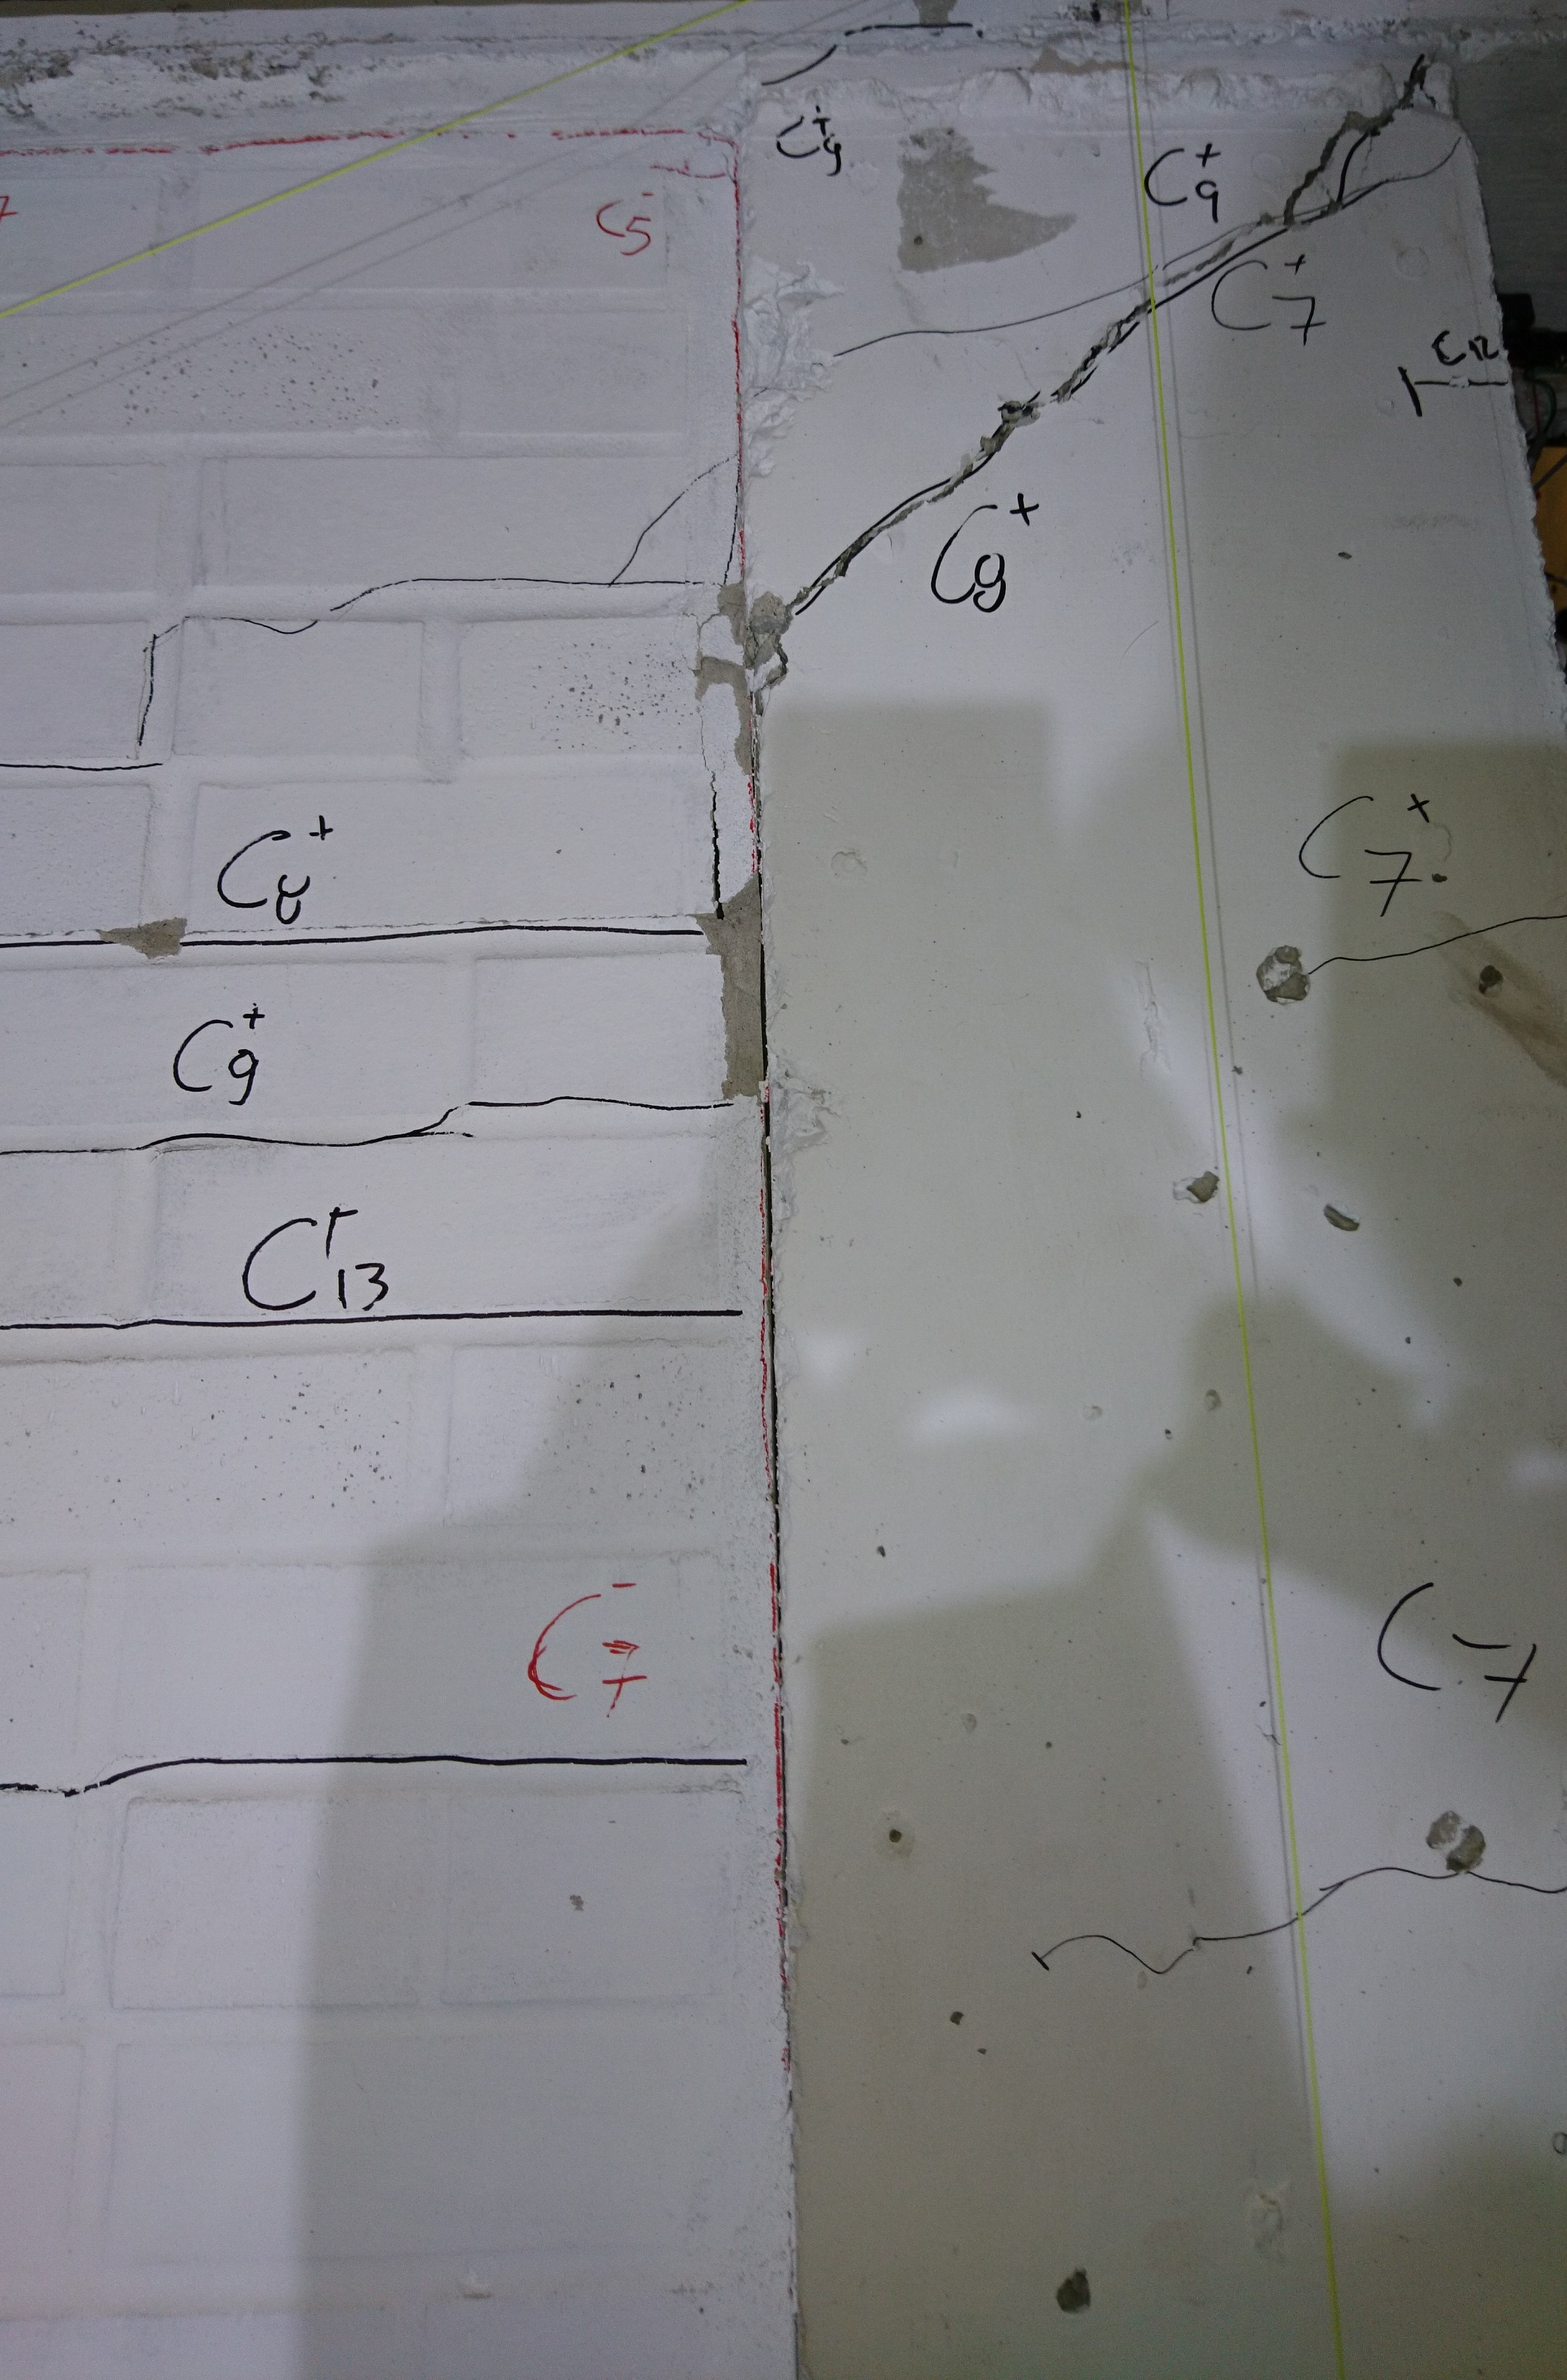 C9+
C9+
C5-
C7+
C12
C9+
C8+
C7+
C9+
C13+
C7-
C-7